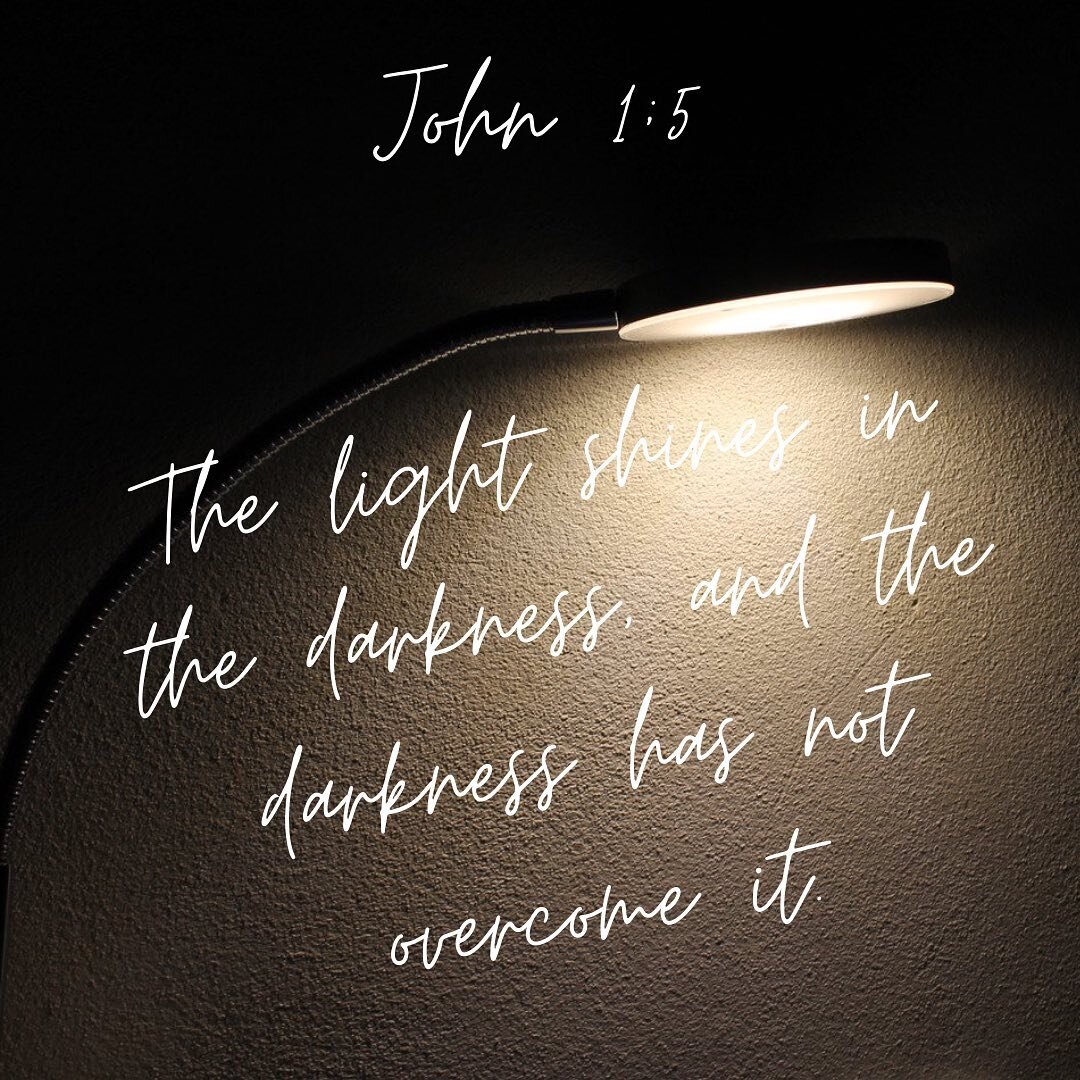 John 1:5
The light shines in
the darkness, and the
darkness has not
overcome it.